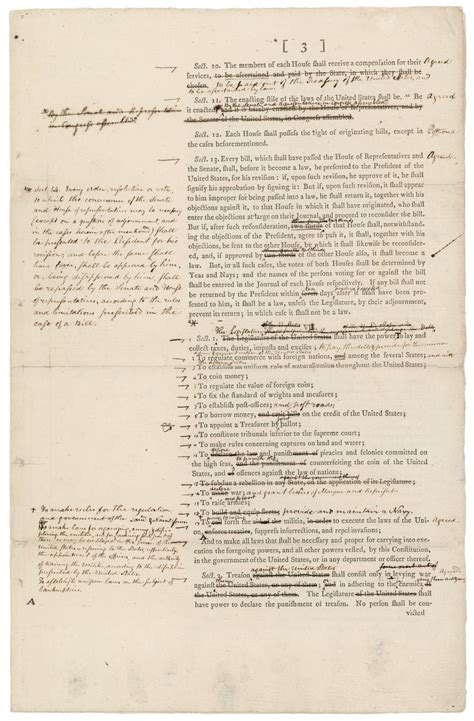 [ 3 ]
Sect. 10. The members of each House shall receive a compensation for their
services, to be ascertained and paid by the State, in which they shall be
chosen. to be paid out of the Treasury of the United States, and
Agreed
Sect. 11. The enacting stile of the laws of the United States shall be. "Be
it enacted and it is hereby enacted by the House of Representatives, and by
the Senate of the United States, in Congress assembled.
Agreed
by the Senate and Representatives
in Congress assembled.
Sect. 12. Each House shall possess the right of originating bills, except in
the cases beforementioned.
Sect. 13. Every bill, which shall have passed the House of Representatives and
the Senate, shall, before it become a law, be presented to the President of the
United States, for his revision: if, upon such revision, he approve of it, he shall
signify his approbation by signing it: But if, upon such revision, it shall appear
to him improper for being passed into a law, he shall return it, together with his
objections against it, to that House in which it shall have originated, who shall
enter the objections at large on their Journal, and proceed to reconsider the bill.
But if, after such reconsideration, two thirds of that House shall, notwithstand-
ing the objections of the President, agree to pass it, it shall, together with his
objections, be sent to the other House, by which it shall likewise be reconsider-
ed, and, if approved by two thirds of the other House also, it shall become a
law. But, in all such cases, the votes of both Houses shall be determined by
Yeas and Nays; and the names of the persons voting for or against the bill shall
be entered in the Journal of each House respectively. If any bill shall not
be returned by the President within days after it shall have been
presented to him, it shall be a law, unless the Legislature, by their adjournment,
prevent its return; in which case it shall not be a law.
Agreed.
Sect. 14. Every order, resolution or vote,
to which the concurrence of the Senate
and House of representatives may be necessary
(except on a question of adjournment and
in the cases herein after mentioned) shall
be presented to the President for his
revision; and before the same shall
have force, shall be approved by him,
or, being disapproved by him, shall
be repassed by the Senate and House
of representatives, according to the rules
and limitations prescribed in the
case of a Bill.
VII.
The Legislature
Sect. 1. The Legislature of the United States shall have the power to lay and
collect taxes, duties, imposts and excises; to pay the debts
To regulate commerce with foreign nations, and among the several States;
To establish an uniform rule of naturalization throughout the United States;
To coin money;
To regulate the value of foreign coin;
To fix the standard of weights and measures;
To establish post-offices; and post roads;
To borrow money, and emit bills on the credit of the United States;
To appoint a Treasurer by ballot;
To constitute tribunals inferior to the supreme court;
To make rules concerning captures on land and water;
To declare the law and punishment of piracies and felonies committed on
the high seas, and the punishment of counterfeiting the coin of the United
States, and of offences against the law of nations;
To subdue a rebellion in any State, on the application of its Legislature;
To make war; and grant letters of marque and reprisal
To raise armies;
To build and equip fleets; provide and maintain a Navy.
To call forth the aid of the militia, in order to execute the laws of the Uni-
on, enforce treaties, suppress insurrections, and repel invasions;
And to make all laws that shall be necessary and proper for carrying into exe-
cution the foregoing powers, and all other powers vested, by this Constitution,
in the government of the United States, or in any department or officer thereof.
Agreed
To make rules for the regulation
and government of the land & naval forces
To establish uniform laws on the subject of
bankruptcies.
A
against the United States
Sect. 2. Treason against the United States shall consist only in levying war
against the United States, or any of them; and in adhering to the enemies
of the United States, or any of them. The Legislature of the United States shall
have power to declare the punishment of treason. No person shall be con-
victed